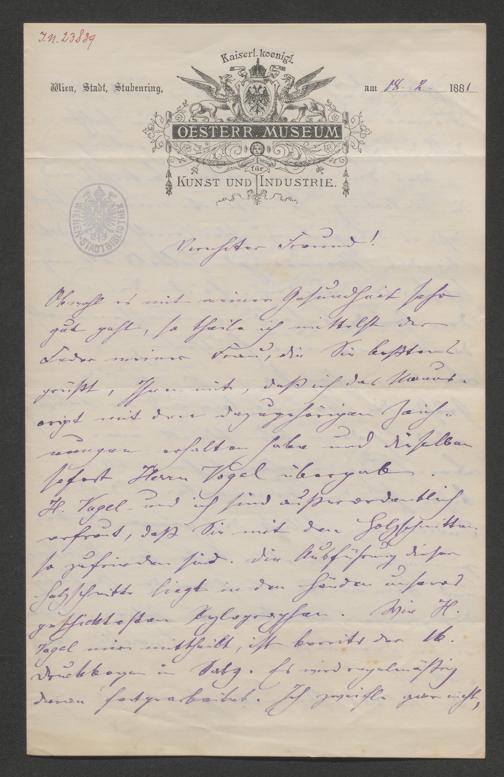 I.N. 23839
Kaiserl. koenigl.
Wien, Stadt, Stubenring,
am 18. 2. 1881
OESTERR. MUSEUM
für
KUNST UND INDUSTRIE.
WIENER STADTBIBLIOTHEK
Verehrter Freund!
Obwohl es mit meiner Gesundheit sehr
gut geht, so theile ich mittelst der
Feder meiner Frau, die Sie bestens
grüßt, Ihnen mit, daß ich das Manus-
cript mit den dazugehörigen Zeich-
nungen erhalten habe und dieselben
sofort Herrn Vogel übergab.
H. Vogel und ich sind außerordentlich
erfreut, daß Sie mit den Holzschnitten
so zufrieden sind. Die Ausführung dieser
Holzschnitte liegt in den Händen unseres
geschicktesten Xylographen. Wie H.
Vogel mir mittheilt, ist bereits der 16.
Druckbogen im Satz. Es wird regelmäßig
daran fortgearbeitet. Ich zweifle gar nicht,